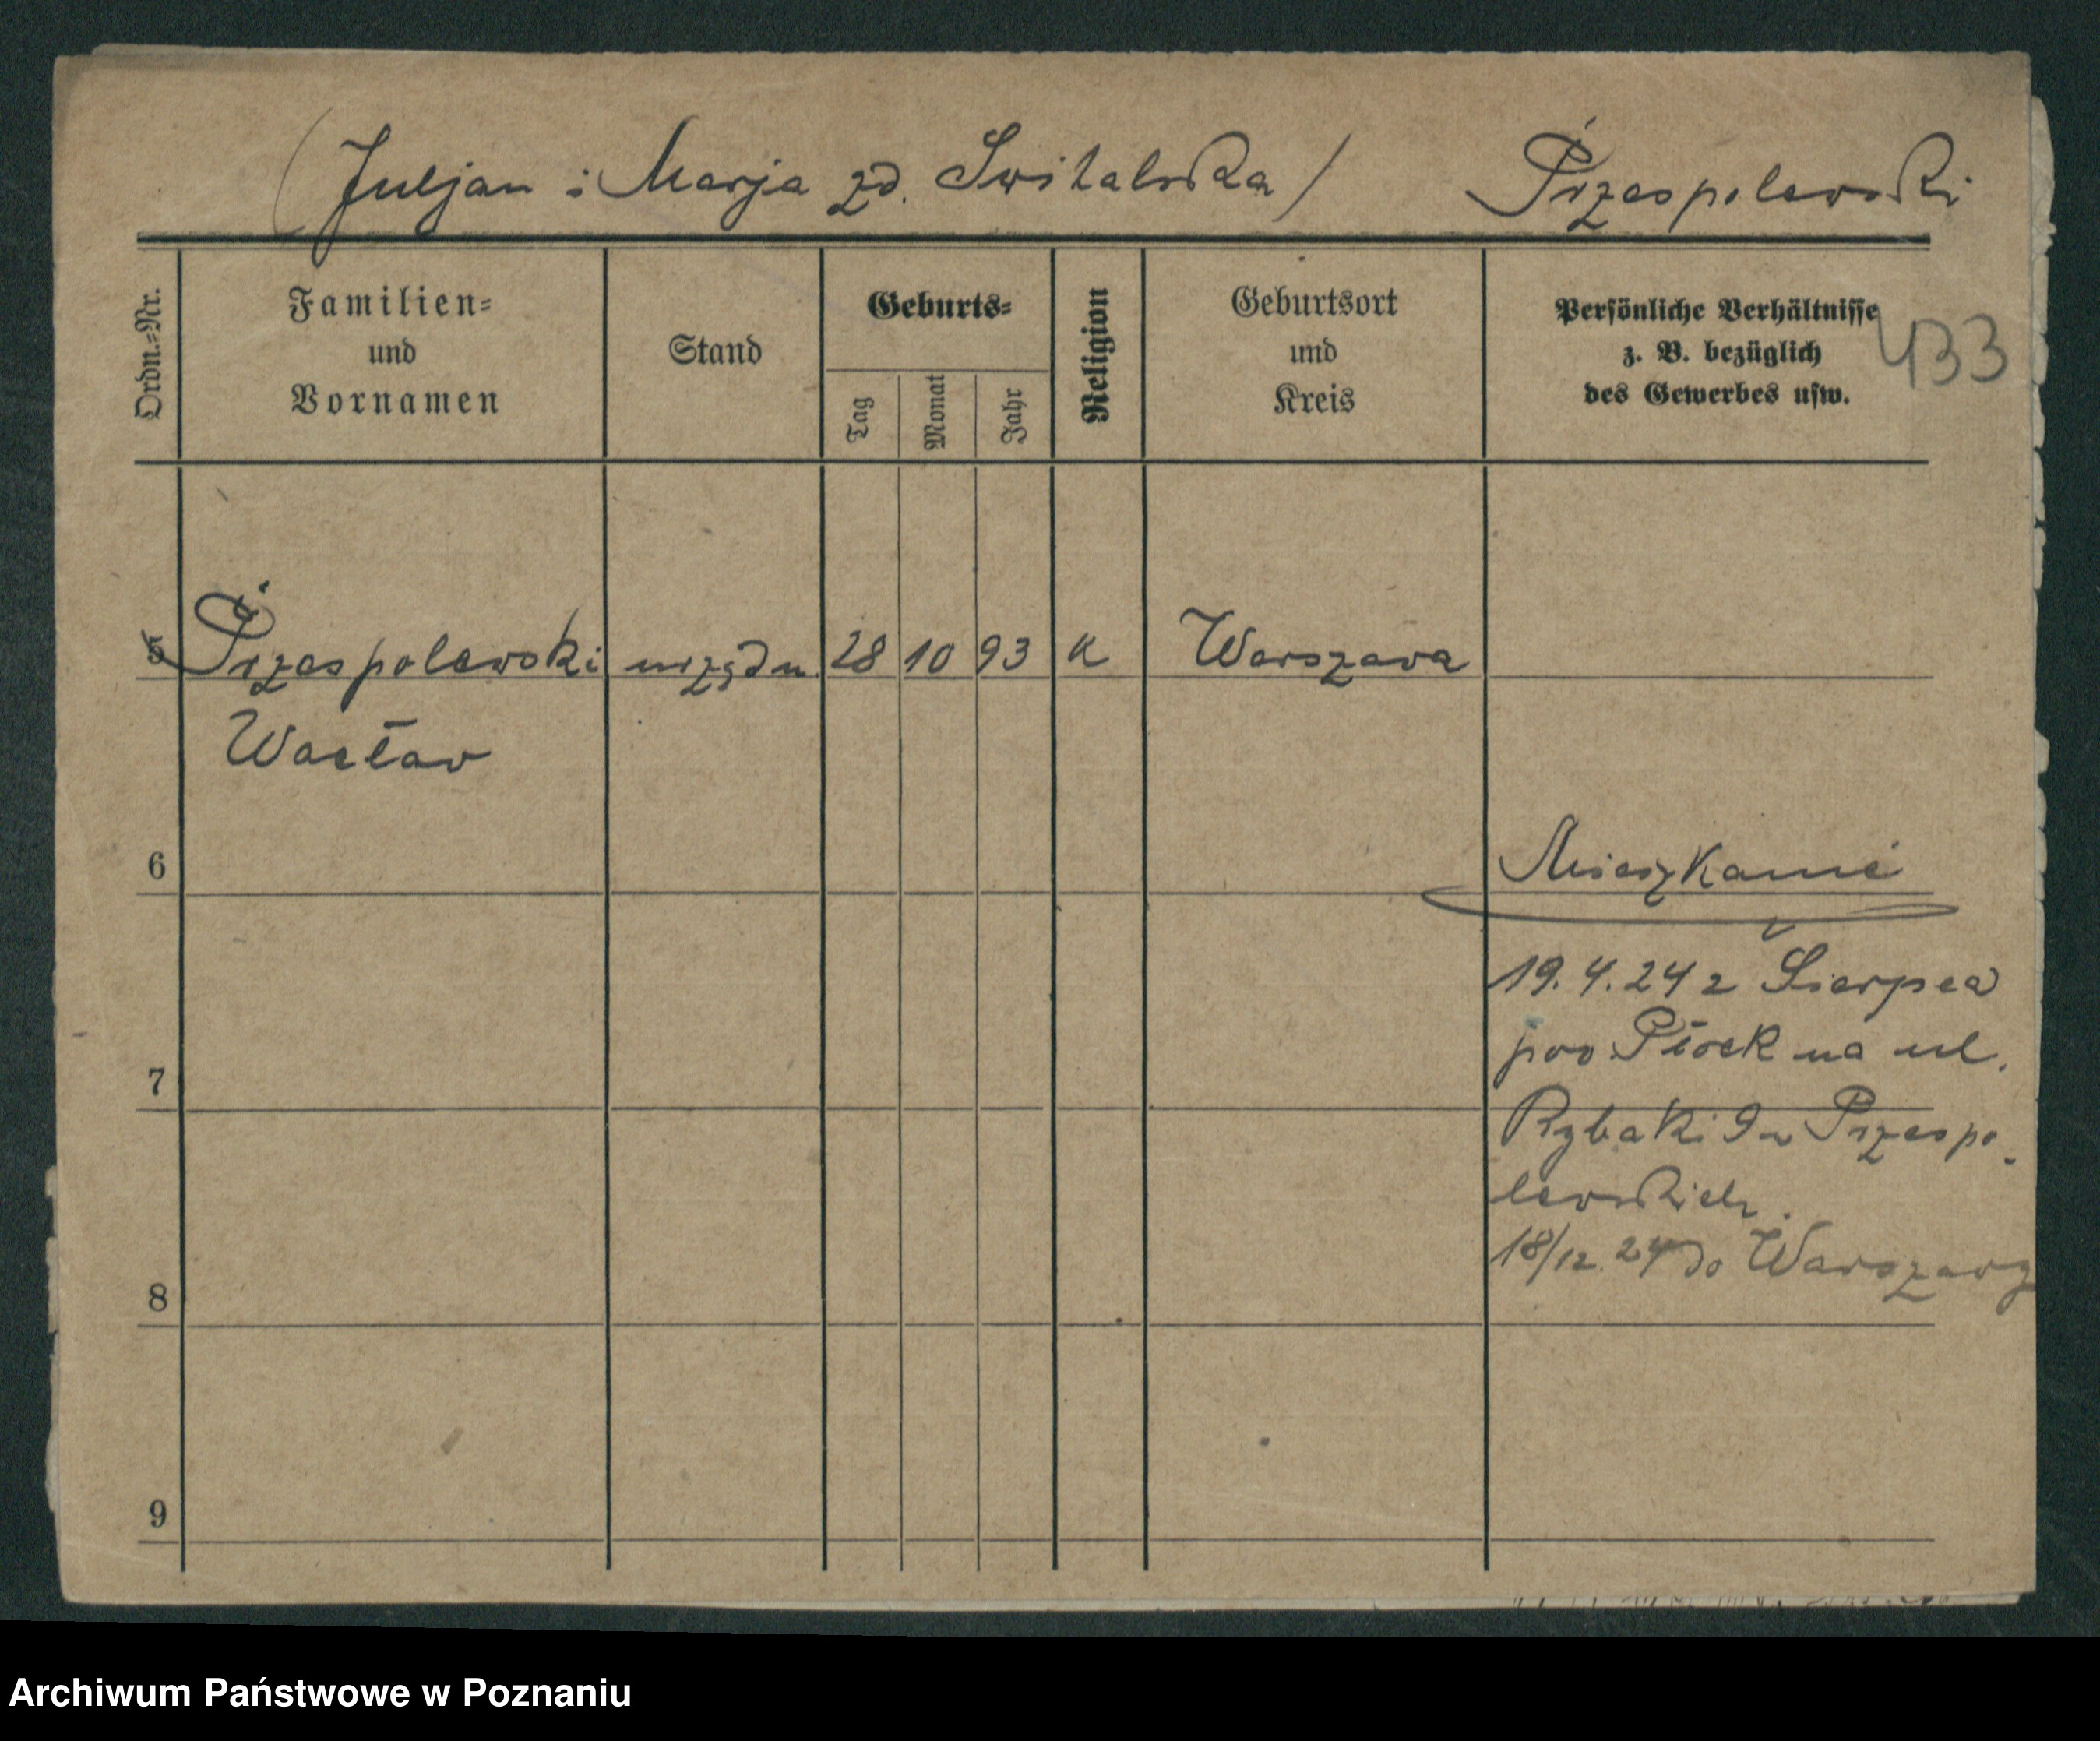 (Juljan i Marja zd. Switalska) Przespolewski
Ordn.=Nr.
Familien=
und
Vornamen
Stand
Geburts=
Tag
Monat
Jahr
Religion
Geburtsort
und
Kreis
Persönliche Verhältnisse
z. B. bezüglich
des Gewerbes usw.
433
5 Przespolewski urzędn. 28 10 93 K Warszawa
Wacław
6 Mieszkanie
19.4.24 z Sierpca
pow Płock na ul.
7
Rybaki 9 u Przespo-
lewskich.
18/12.24 do Warszawy
8
9
Archiwum Państwowe w Poznaniu